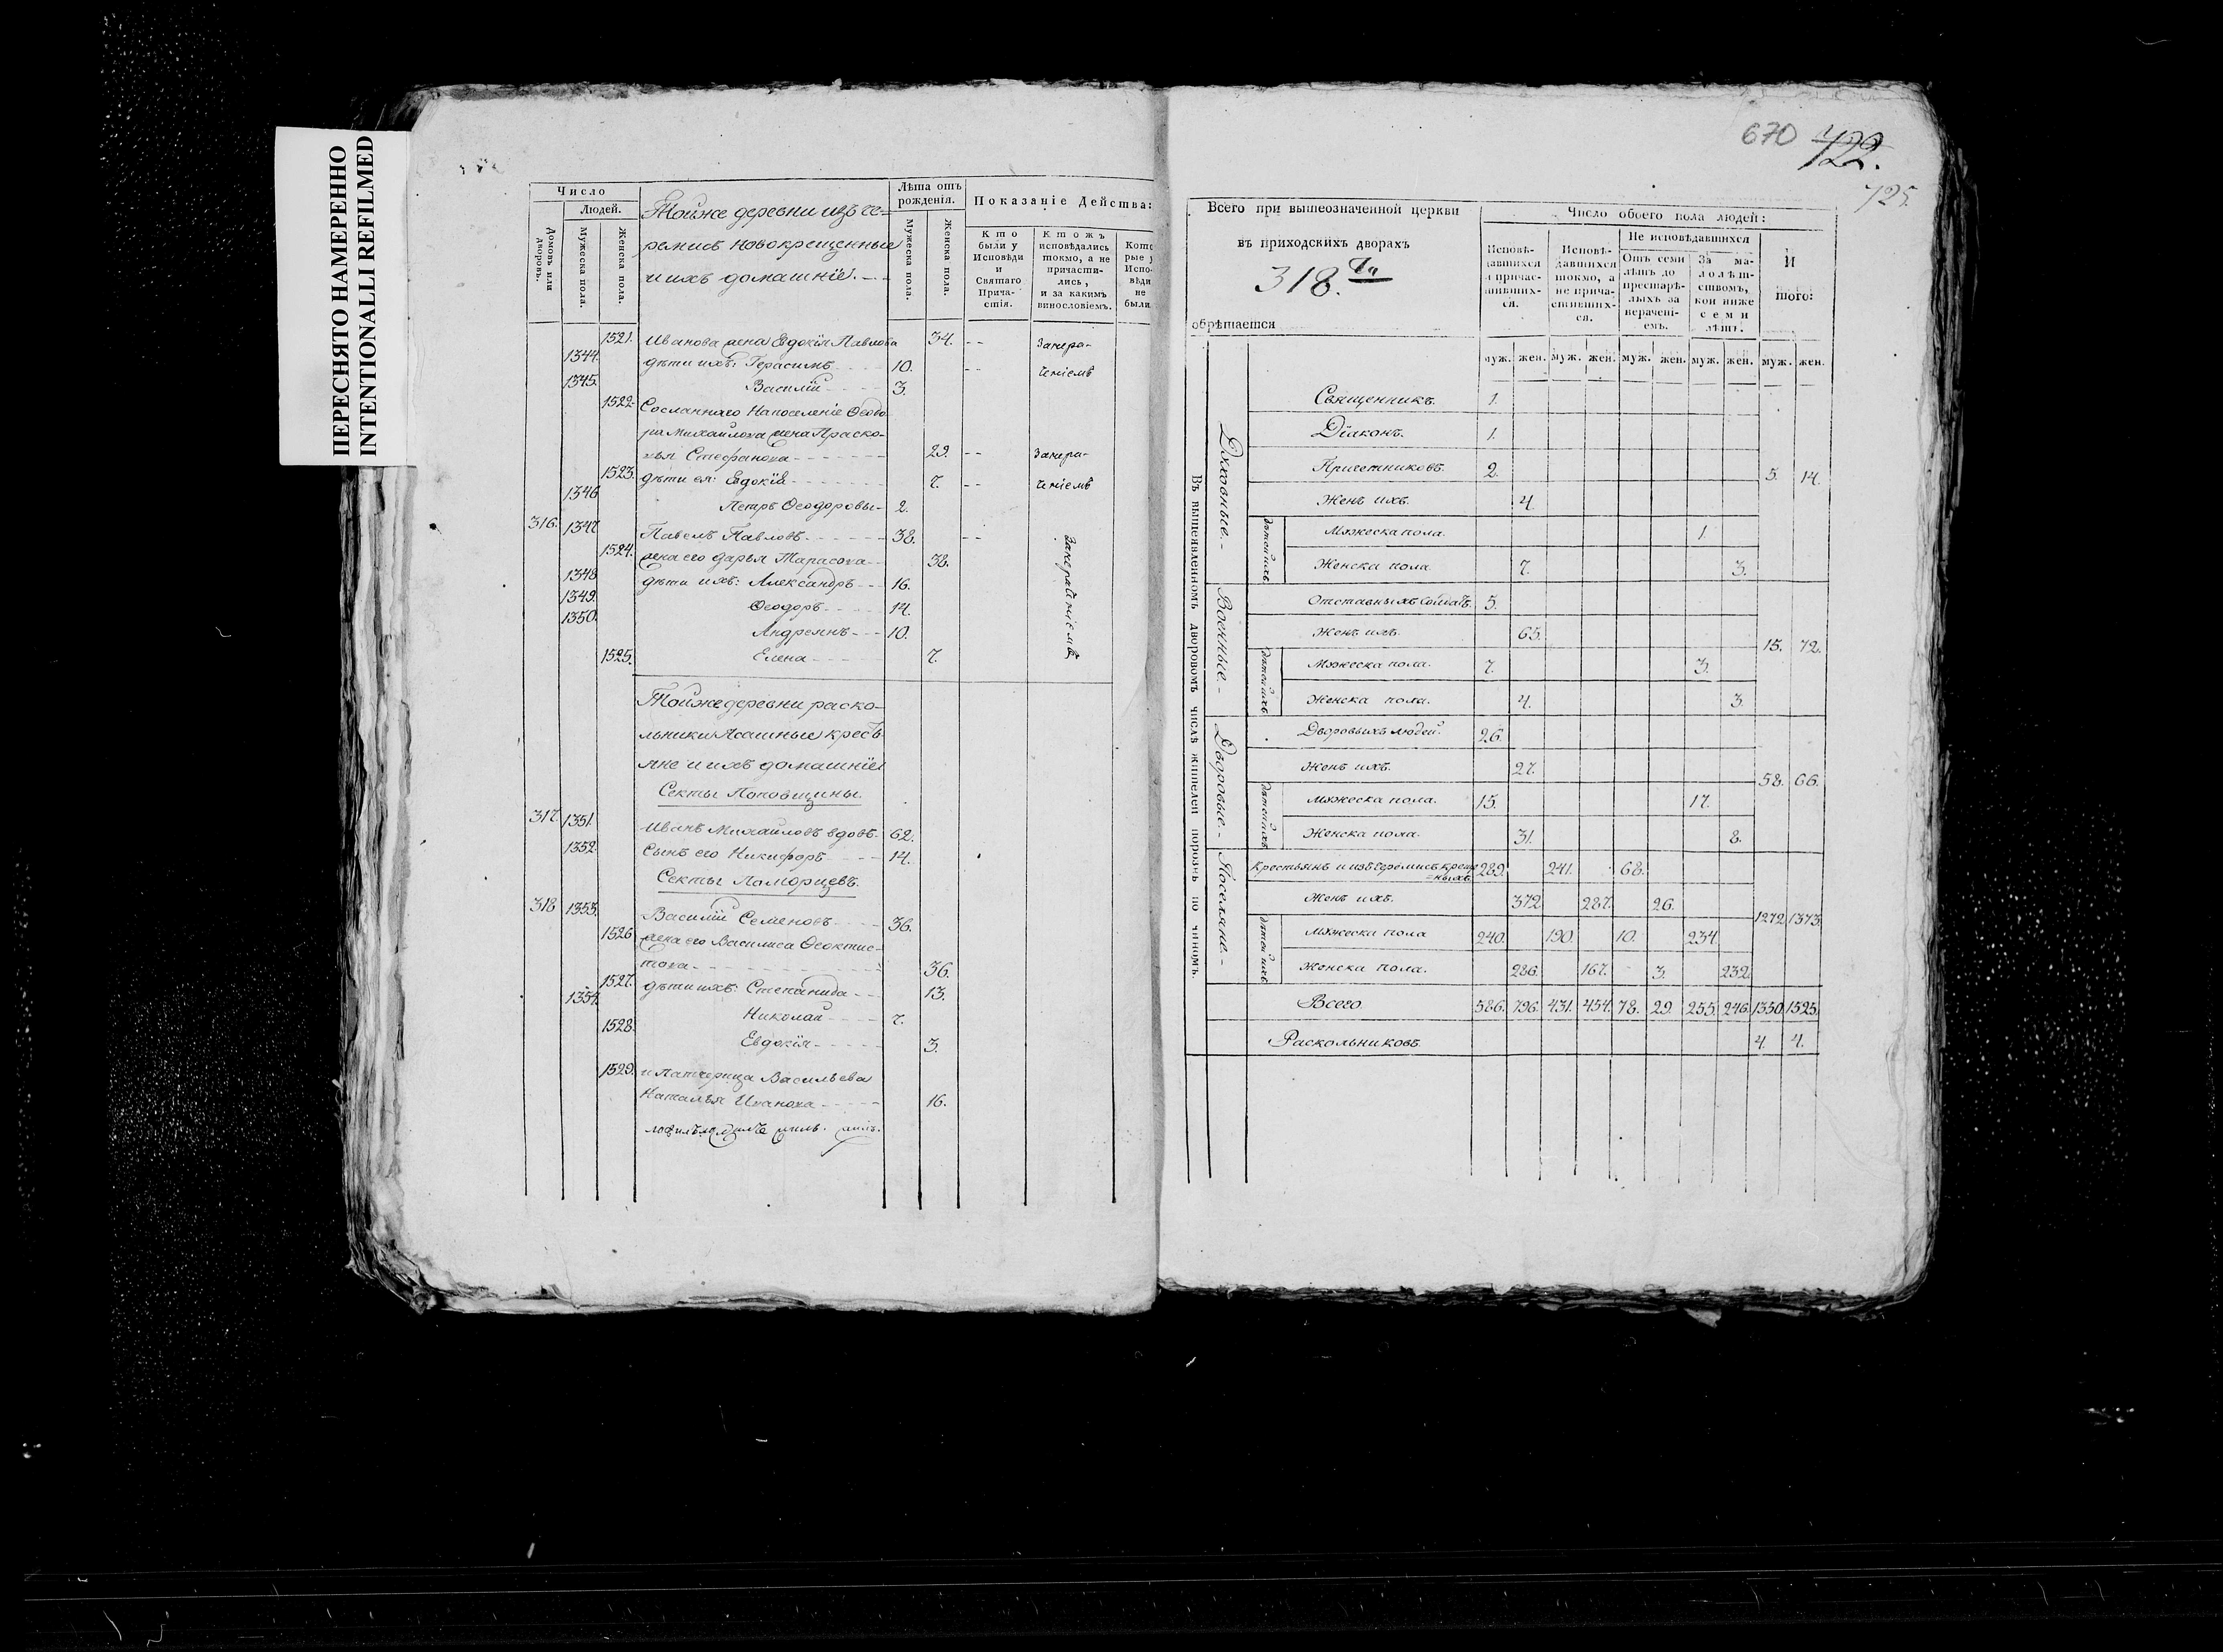 ПЕРЕСНЯТО НАМЕРЕННО
INTENTIONALLI REFILMED
Число
Людей.
Домовъ или дворовъ.
Мужеска пола.
Женска пола.
Тойже деревни изъ че-
ремисъ новокрещенные
и ихъ домашніе.
Лѣта отъ рожденія.
Мужеска пола.
Женска пола.
Показаніе Действа:
Кто были у Исповѣди и Святаго Прича-стія.
Ктожъ исповѣдались токмо, а не причасти-лись, и за какимъ винословіемъ.
Кото рые у Испо-вѣди не были
1521. Иванова жена Евдокія Павлова 34. -- Занера-
1344. дѣти ихъ: Герасимъ 10. -- ченіемъ
1345. Василій 3.
1522. Сосланнаго на поселеніе Ѳеодо
ра Михайлова жена Праско-
вья Стефанова 29. -- Занера-
1523. дѣти ея: Евдокія 7. -- ченіемъ
1346 Петръ Ѳеодоровы 2.
316. 1347 Павелъ Павловъ 38. --
1524. жена его Дарья Тарасова 38.
1348 дѣти ихъ: Александръ 16.
1349. Ѳеодоръ 14.
1350. Андреянъ 10.
1525. Елена 7.
Тойже деревни раско-
льники Ясашные кресть
яне и ихъ домашніе
Секты Поповщины.
317. 1351. Иванъ Михайловъ вдовъ 62.
1352. Сынъ его Никифоръ 14.
Секты Поморцевъ.
318 1353. Василій Семеновъ 36.
1526 жена его Василиса Ѳеоктис-
това 36.
1527. дѣти ихъ: Степанида 13.
1354. Николай 7.
1528. Евдокія 3.
1529. и Патчерица Васильева
Наталья Иванова 16.
670 722.
725.
Всего при вышеозначенной церкви
въ приходскихъ дворахъ
318.
обрѣтается
Число обоего пола людей:
Исповѣ-давшихся и причас-тивших-ся.
Исповѣ-давшихся токмо, а не прича-стивших-ся.
Не исповѣдавшихся
Отъ семи лѣтъ до престарѣ-лыхъ за нерачені-емъ.
За ма-лолѣт-ствомъ, кои ниже семи лѣтъ.
И того:
муж. жен. муж. жен. муж. жен. муж. жен. муж. жен.
Въ вышеявленномъ дворовомъ числѣ жителей порознь по чиномъ.
Духовные.
Священникъ. 1.
Діаконъ. 1.
Причетниковъ. 2. 5. 14.
Женъ ихъ. 4.
дѣтей ихъ
Мужеска пола. 1.
Женска пола. 7. 3.
Военные.
Отставныхъ Солдатъ. 5.
Женъ ихъ. 65. 15. 72.
дѣтей ихъ
Мужеска пола. 7. 3.
Женска пола. 4. 3.
Дворовые.
Дворовыхъ людей. 26.
Женъ ихъ. 27. 58. 66.
дѣтей ихъ
Мужеска пола. 15. 17.
Женска пола. 31. 8.
Поселяне.
Крестьянъ и изъ Черемисъ креще
=ныхъ 289. 241. 68.
Женъ ихъ. 372. 287. 26. 1272. 1373.
дѣтей ихъ
Мужеска пола 240. 190. 10. 234.
Женска пола. 286. 167. 3. 232.
Всего 586. 796. 431. 454. 78. 29. 255. 246. 1350. 1525.
Раскольниковъ. 4. 4.